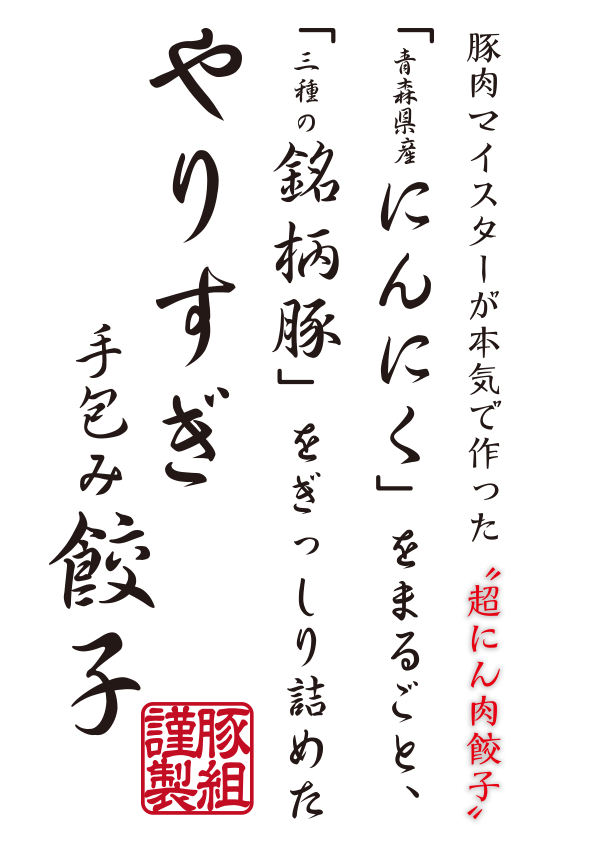 豚肉マイスターが本気で作った〝超にん肉餃子〟
「青森県産にんにく」をまるごと、
「三種の銘柄豚」をぎっしり詰めた
やりすぎ
手包み餃子
豚組
謹製